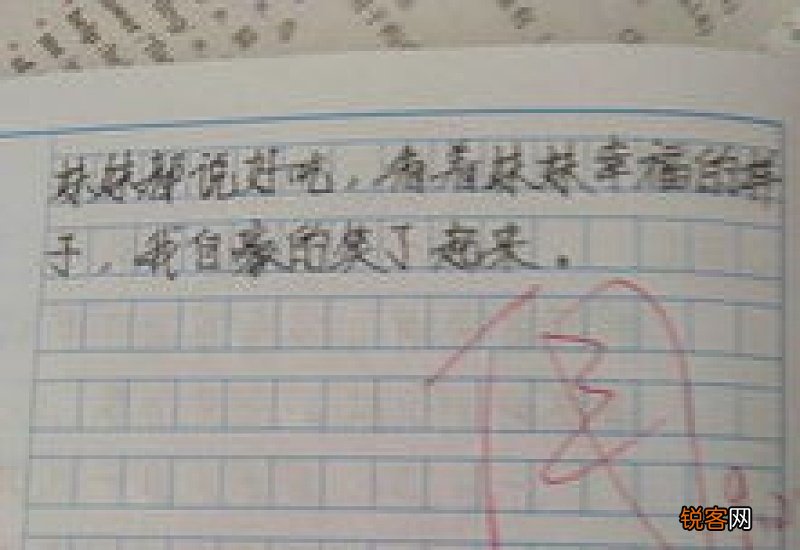 妹妹都说好吃，看着妹妹幸福的样
子，我自豪的笑了起来。
锐客网